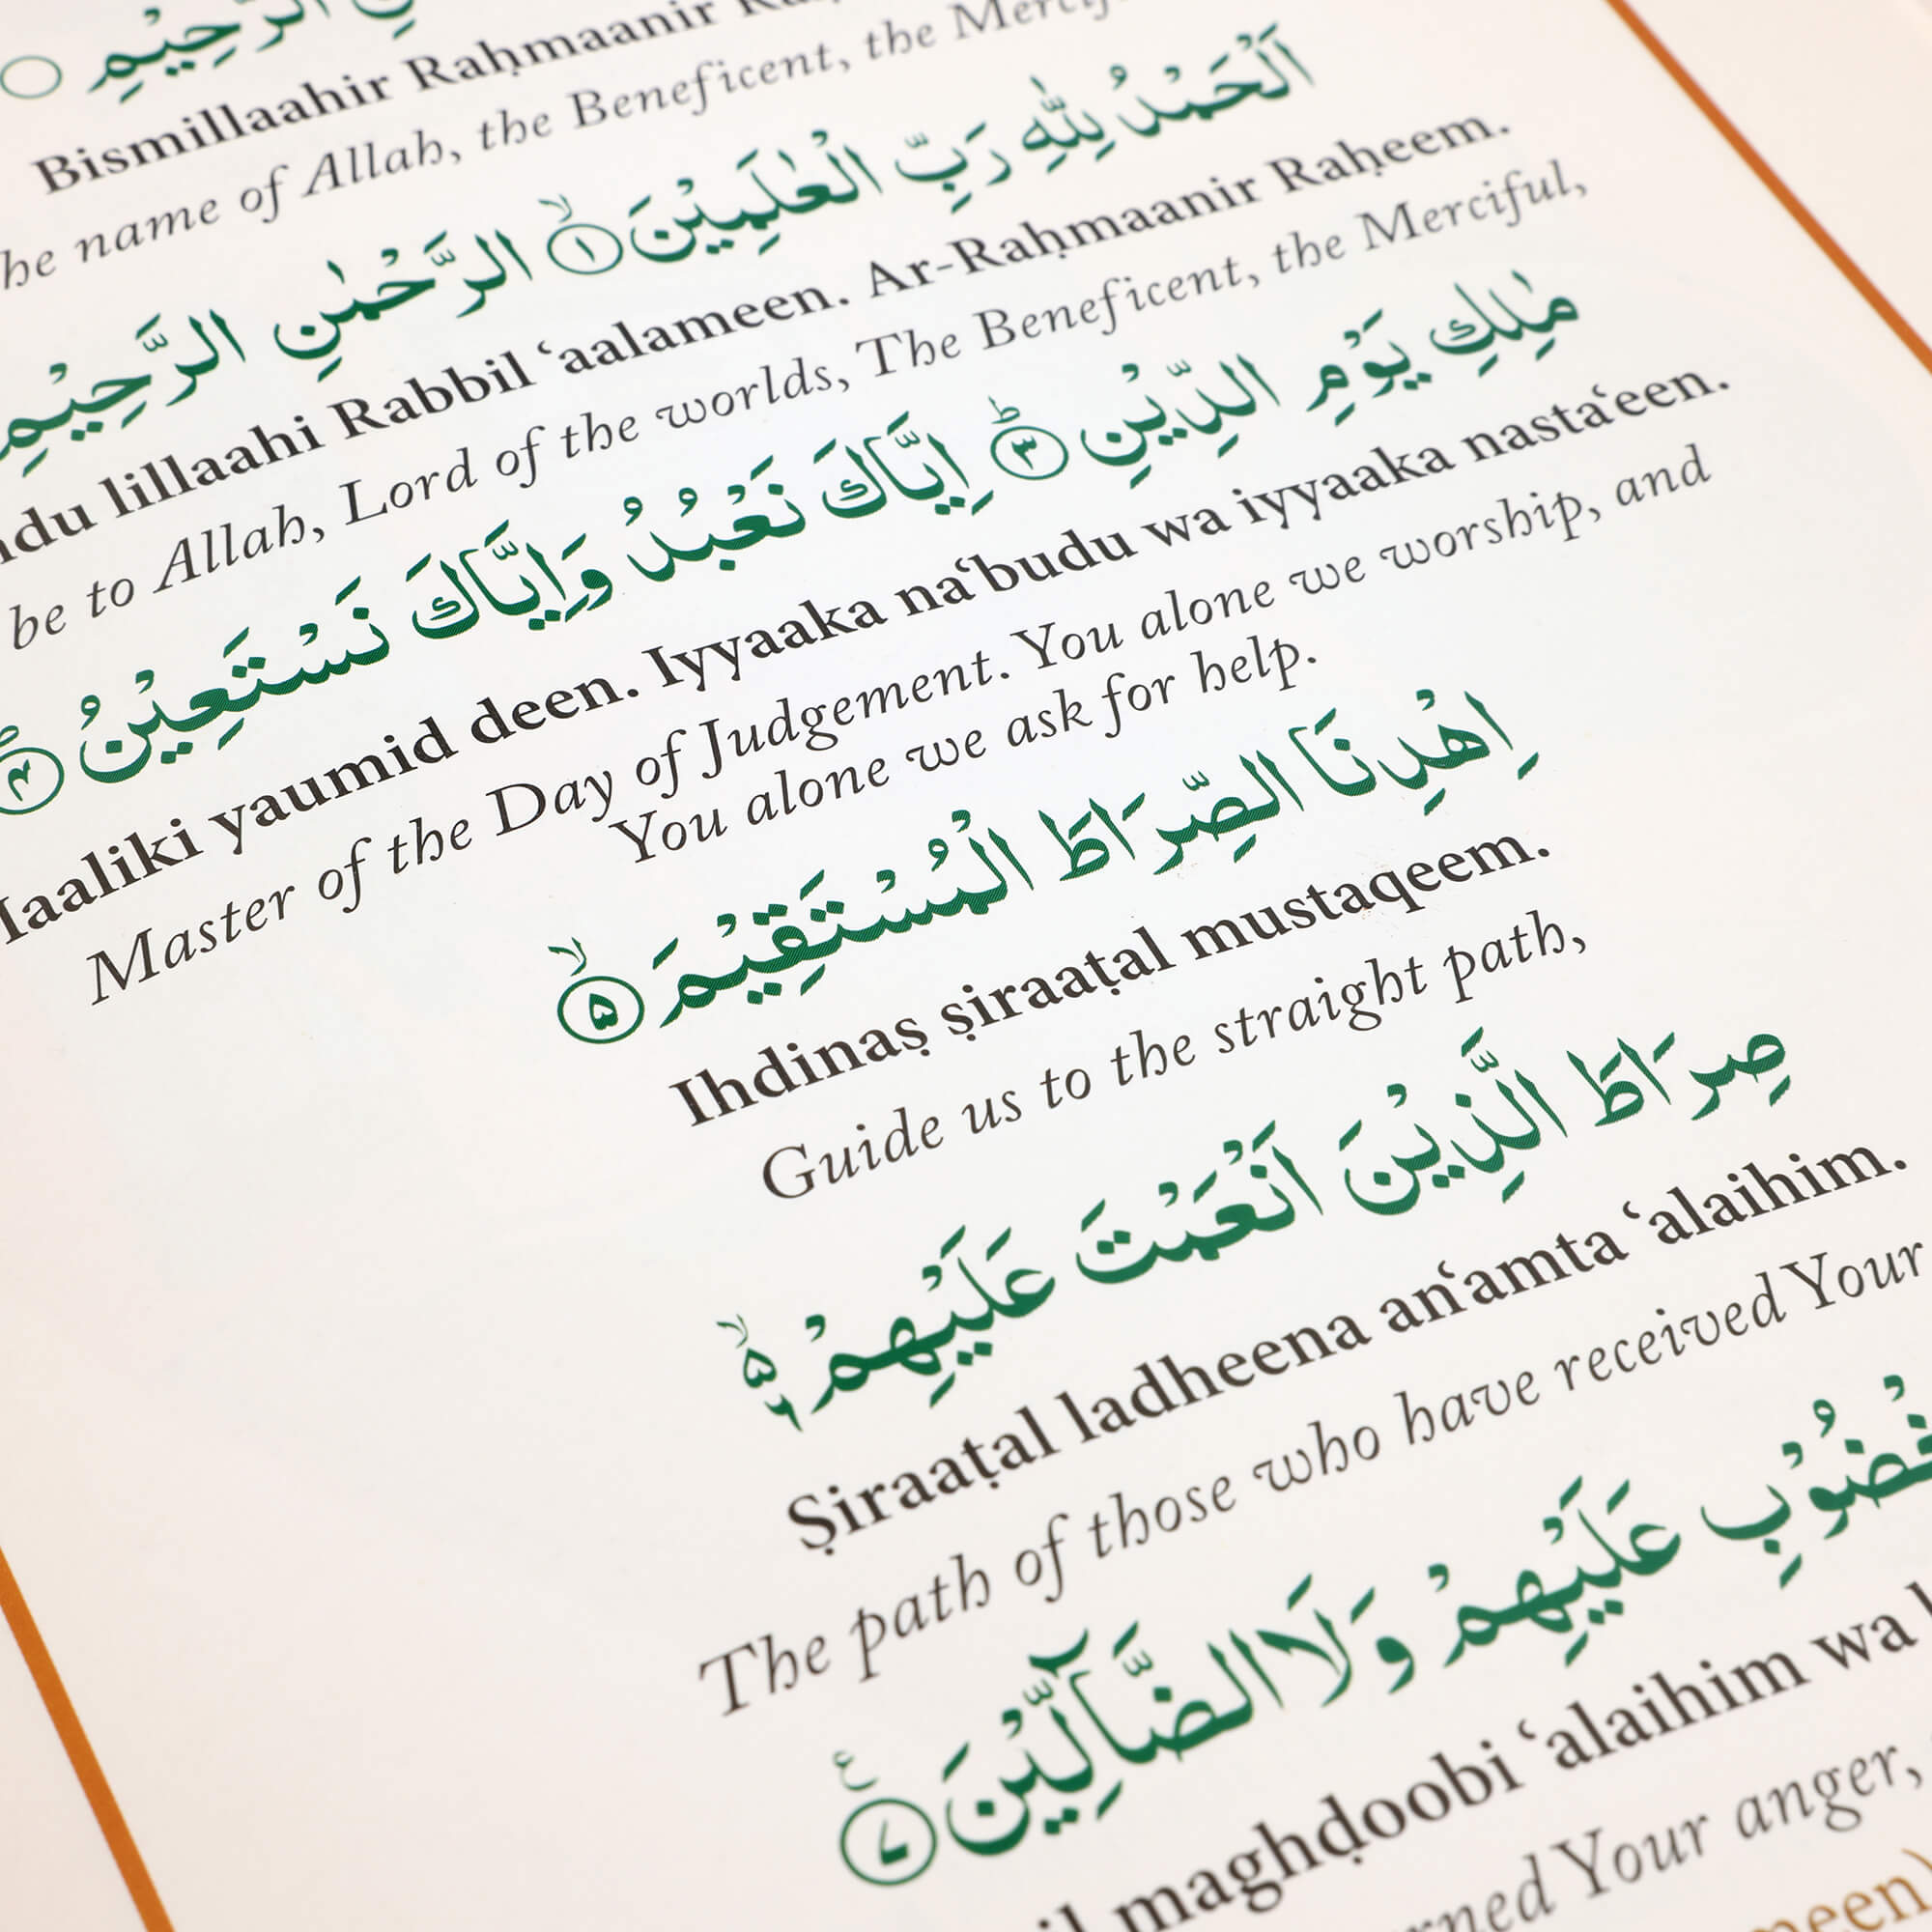 الرَّحِيْمِ
Bismillaahir Raḥmaanir
name of Allah, the Beneficent, the
اَلْحَمْدُ لِلّٰهِ رَبِّ الْعٰلَمِيْنَ ۙ﴿۱﴾ الرَّحْمٰنِ الرَّحِيْمِ
lillaahi Rabbil ‘aalameen. Ar-Raḥmaanir Raḥeem.
be to Allah, Lord of the worlds, The Beneficent, the Merciful,
مٰلِكِ يَوْمِ الدِّيْنِ ؕ﴿۳﴾ اِيَّاكَ نَعْبُدُ وَاِيَّاكَ نَسْتَعِيْنُ ؕ﴿۴﴾
Maaliki yaumid deen. Iyyaaka na‘budu wa iyyaaka nasta‘een.
Master of the Day of Judgement. You alone we worship, and
You alone we ask for help.
اِهْدِنَا الصِّرَاطَ الْمُسْتَقِيْمَ ۙ﴿۵﴾
Ihdinaṣ ṣiraaṭal mustaqeem.
Guide us to the straight path,
صِرَاطَ الَّذِيْنَ اَنْعَمْتَ عَلَيْهِمْ ۙ۵
Ṣiraaṭal ladheena an‘amta ‘alaihim.
The path of those who have received Your
عَلَيْهِمْ وَلَا الضَّآلِّيْنَ ﴿۷﴾
maghḍoobi ‘alaihim wa
Your anger,